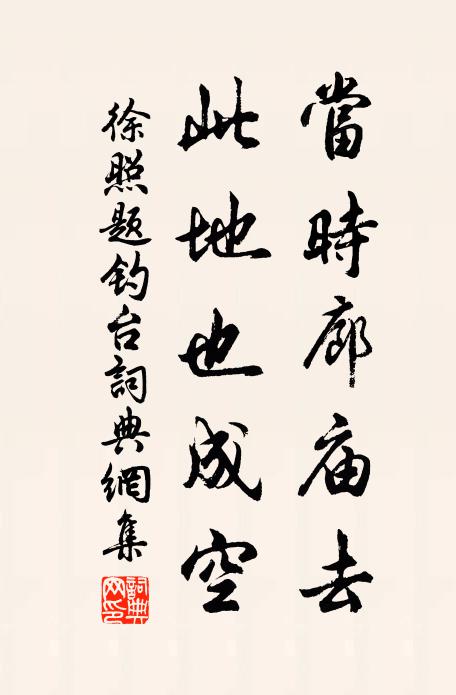 當時廊庙去
此地也成空
徐照题钓台詞典網集
詞典
网印